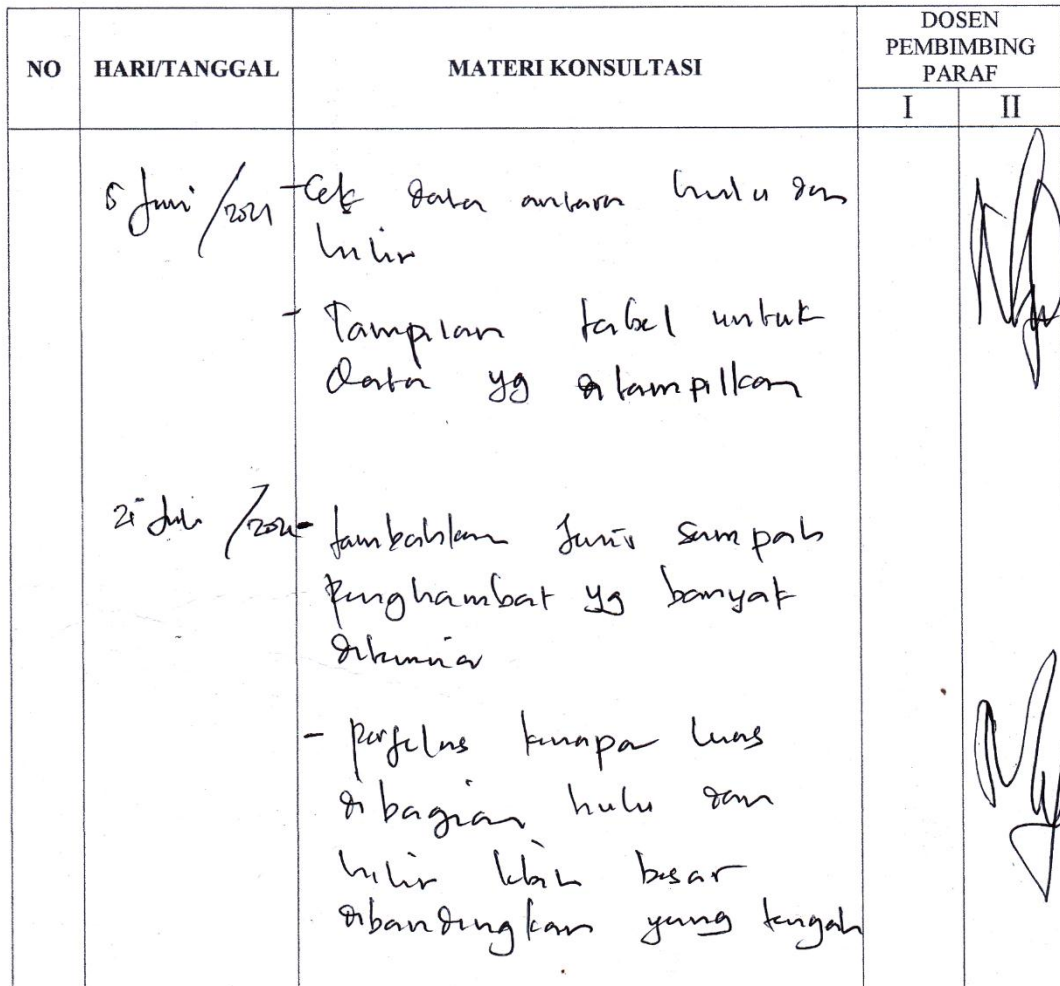 NO HARI/TANGGAL MATERI KONSULTASI DOSEN PEMBIMBING PARAF
I II
5 Juni /2021 - Cek data antara hulu dan
hilir
- Tampilan tabel untuk
data yg ditampilkan
Juli /2021 - tambahkan Jenis sampah
penghambat yg banyak
- perjelas kenapa luas
dibagian hulu dan
hilir lebih besar
dibandingkan yang tengah